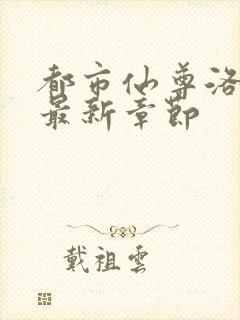 都市仙尊洛
最新章节
戴祖雲